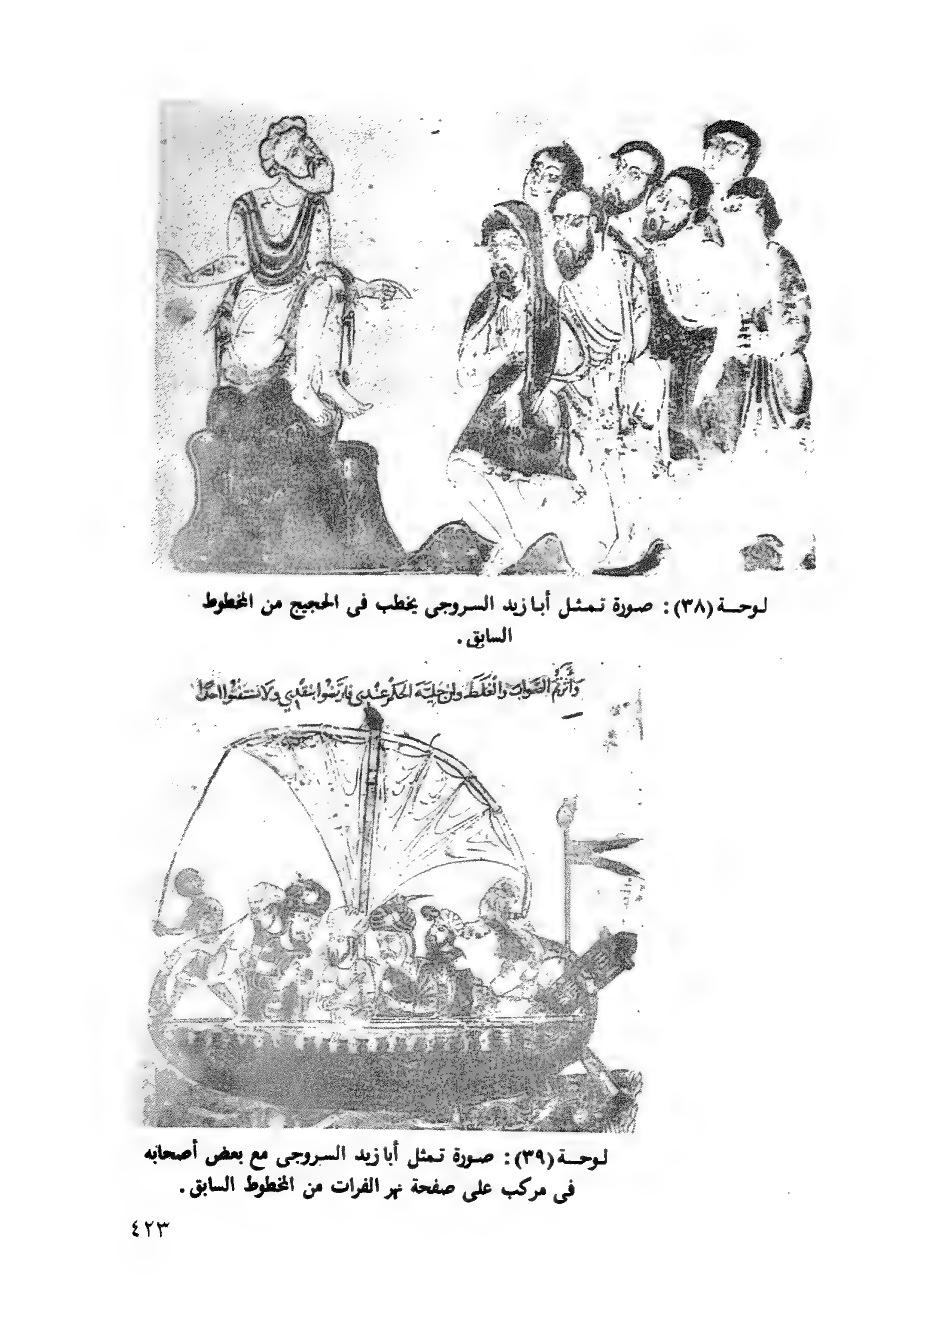 لوحـة (٣٨): صورة تمثل أبا زيد السروجى يخطب فى الحجيج من المخطوط
السابق.
الصواب والغلط ولا تستفتوا احدا
لوحـة (٣٩): صورة تمثل أبا زيد السروجى مع بعض أصحابه
فى مركب على صفحة نهر الفرات من المخطوط السابق.
٤٢٣